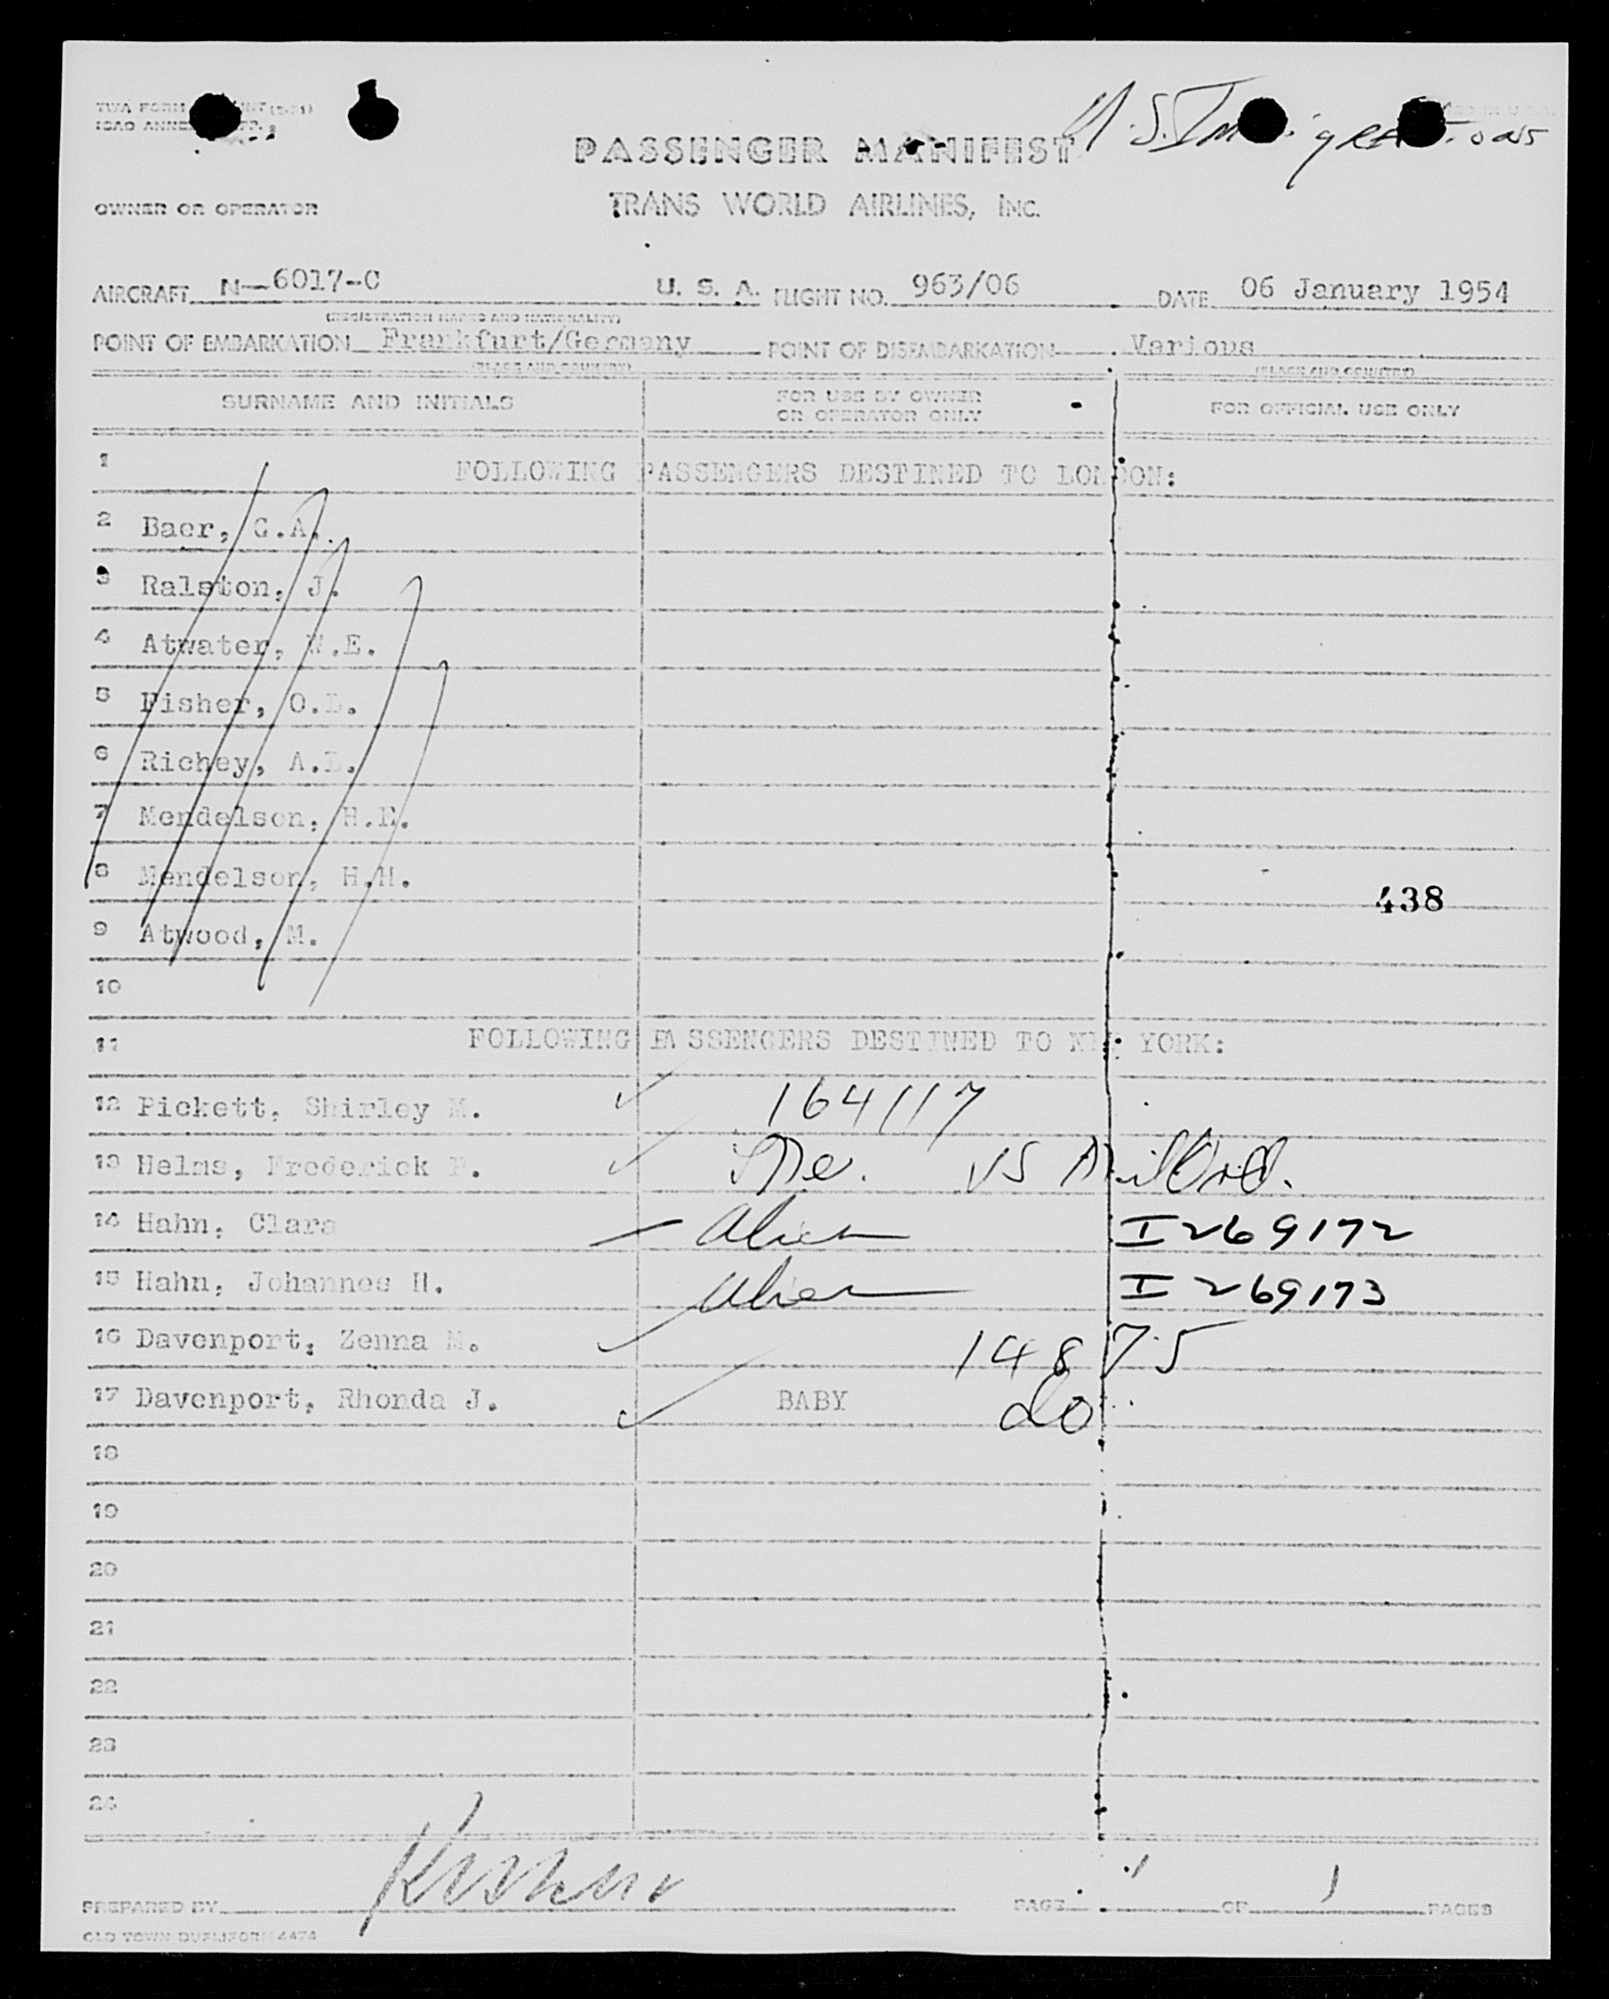 TWA FORM
ICAO ANNEX
U.S. Immigrations
PASSENGER MANIFEST
OWNER OR OPERATOR
TRANS WORLD AIRLINES, INC.
AIRCRAFT N-6017-C U. S. A. FLIGHT NO. 963/06 DATE 06 January 1954
(REGISTRATION MARKS AND NATIONALITY)
POINT OF EMBARKATION Frankfurt/Germany POINT OF DISEMBARKATION Various
(PLACE AND COUNTRY) (PLACE AND COUNTRY)
SURNAME AND INITIALS FOR USE BY OWNER OR OPERATOR ONLY FOR OFFICIAL USE ONLY
1 FOLLOWING PASSENGERS DESTINED TO LONDON:
2 Baer, G.A.
3 Ralston, J.
4 Atwater, W.E.
5 Fisher, O.
6 Richey, A.
7 Mendelson, H.E.
8 Mendelson, H.H.
438
9 Atwood, M.
10
11 FOLLOWING PASSENGERS DESTINED TO NEW YORK:
12 Pickett, Shirley M. 164117
13 Helms, Frederick
14 Hahn, Clara Alien I269172
15 Hahn, Johannes H. Alien I269173
16 Davenport, Zenna M. 14875
17 Davenport, Rhonda J. BABY do
18
19
20
21
22
23
24
PREPARED BY PAGE 1 OF 1 PAGES
OLD TOWN DUPLIFORM 4474